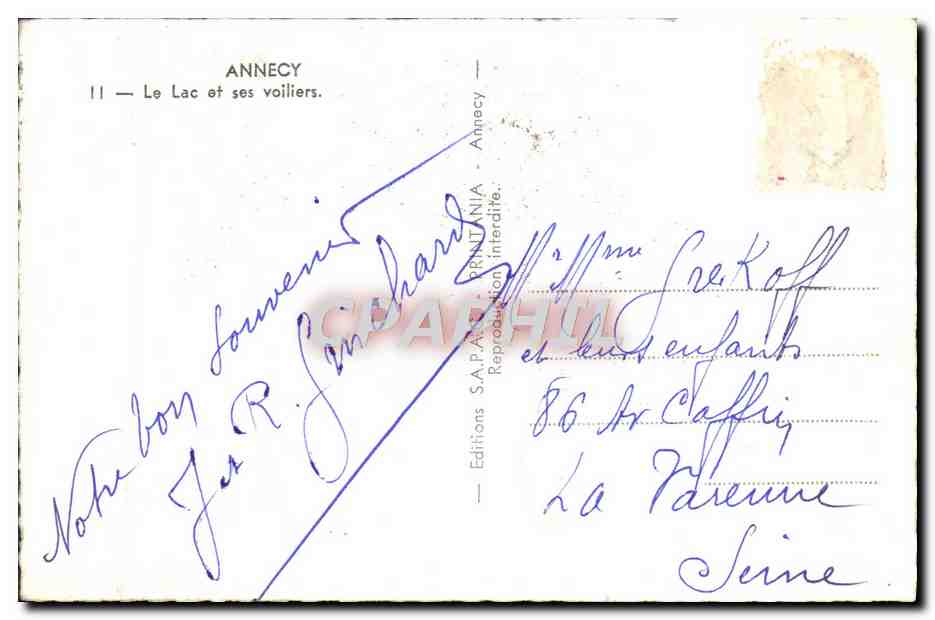 ANNECY
11 — Le Lac et ses voiliers.
Notre bon souvenir
R. Guichard
— Editions S.A.P.A.C. PRINTANIA - Annecy —
Reproduction interdite.
CPAPHIL
Mr Mme Grekoff
et leurs enfants
86 Av Caffin
La Varenne
Seine